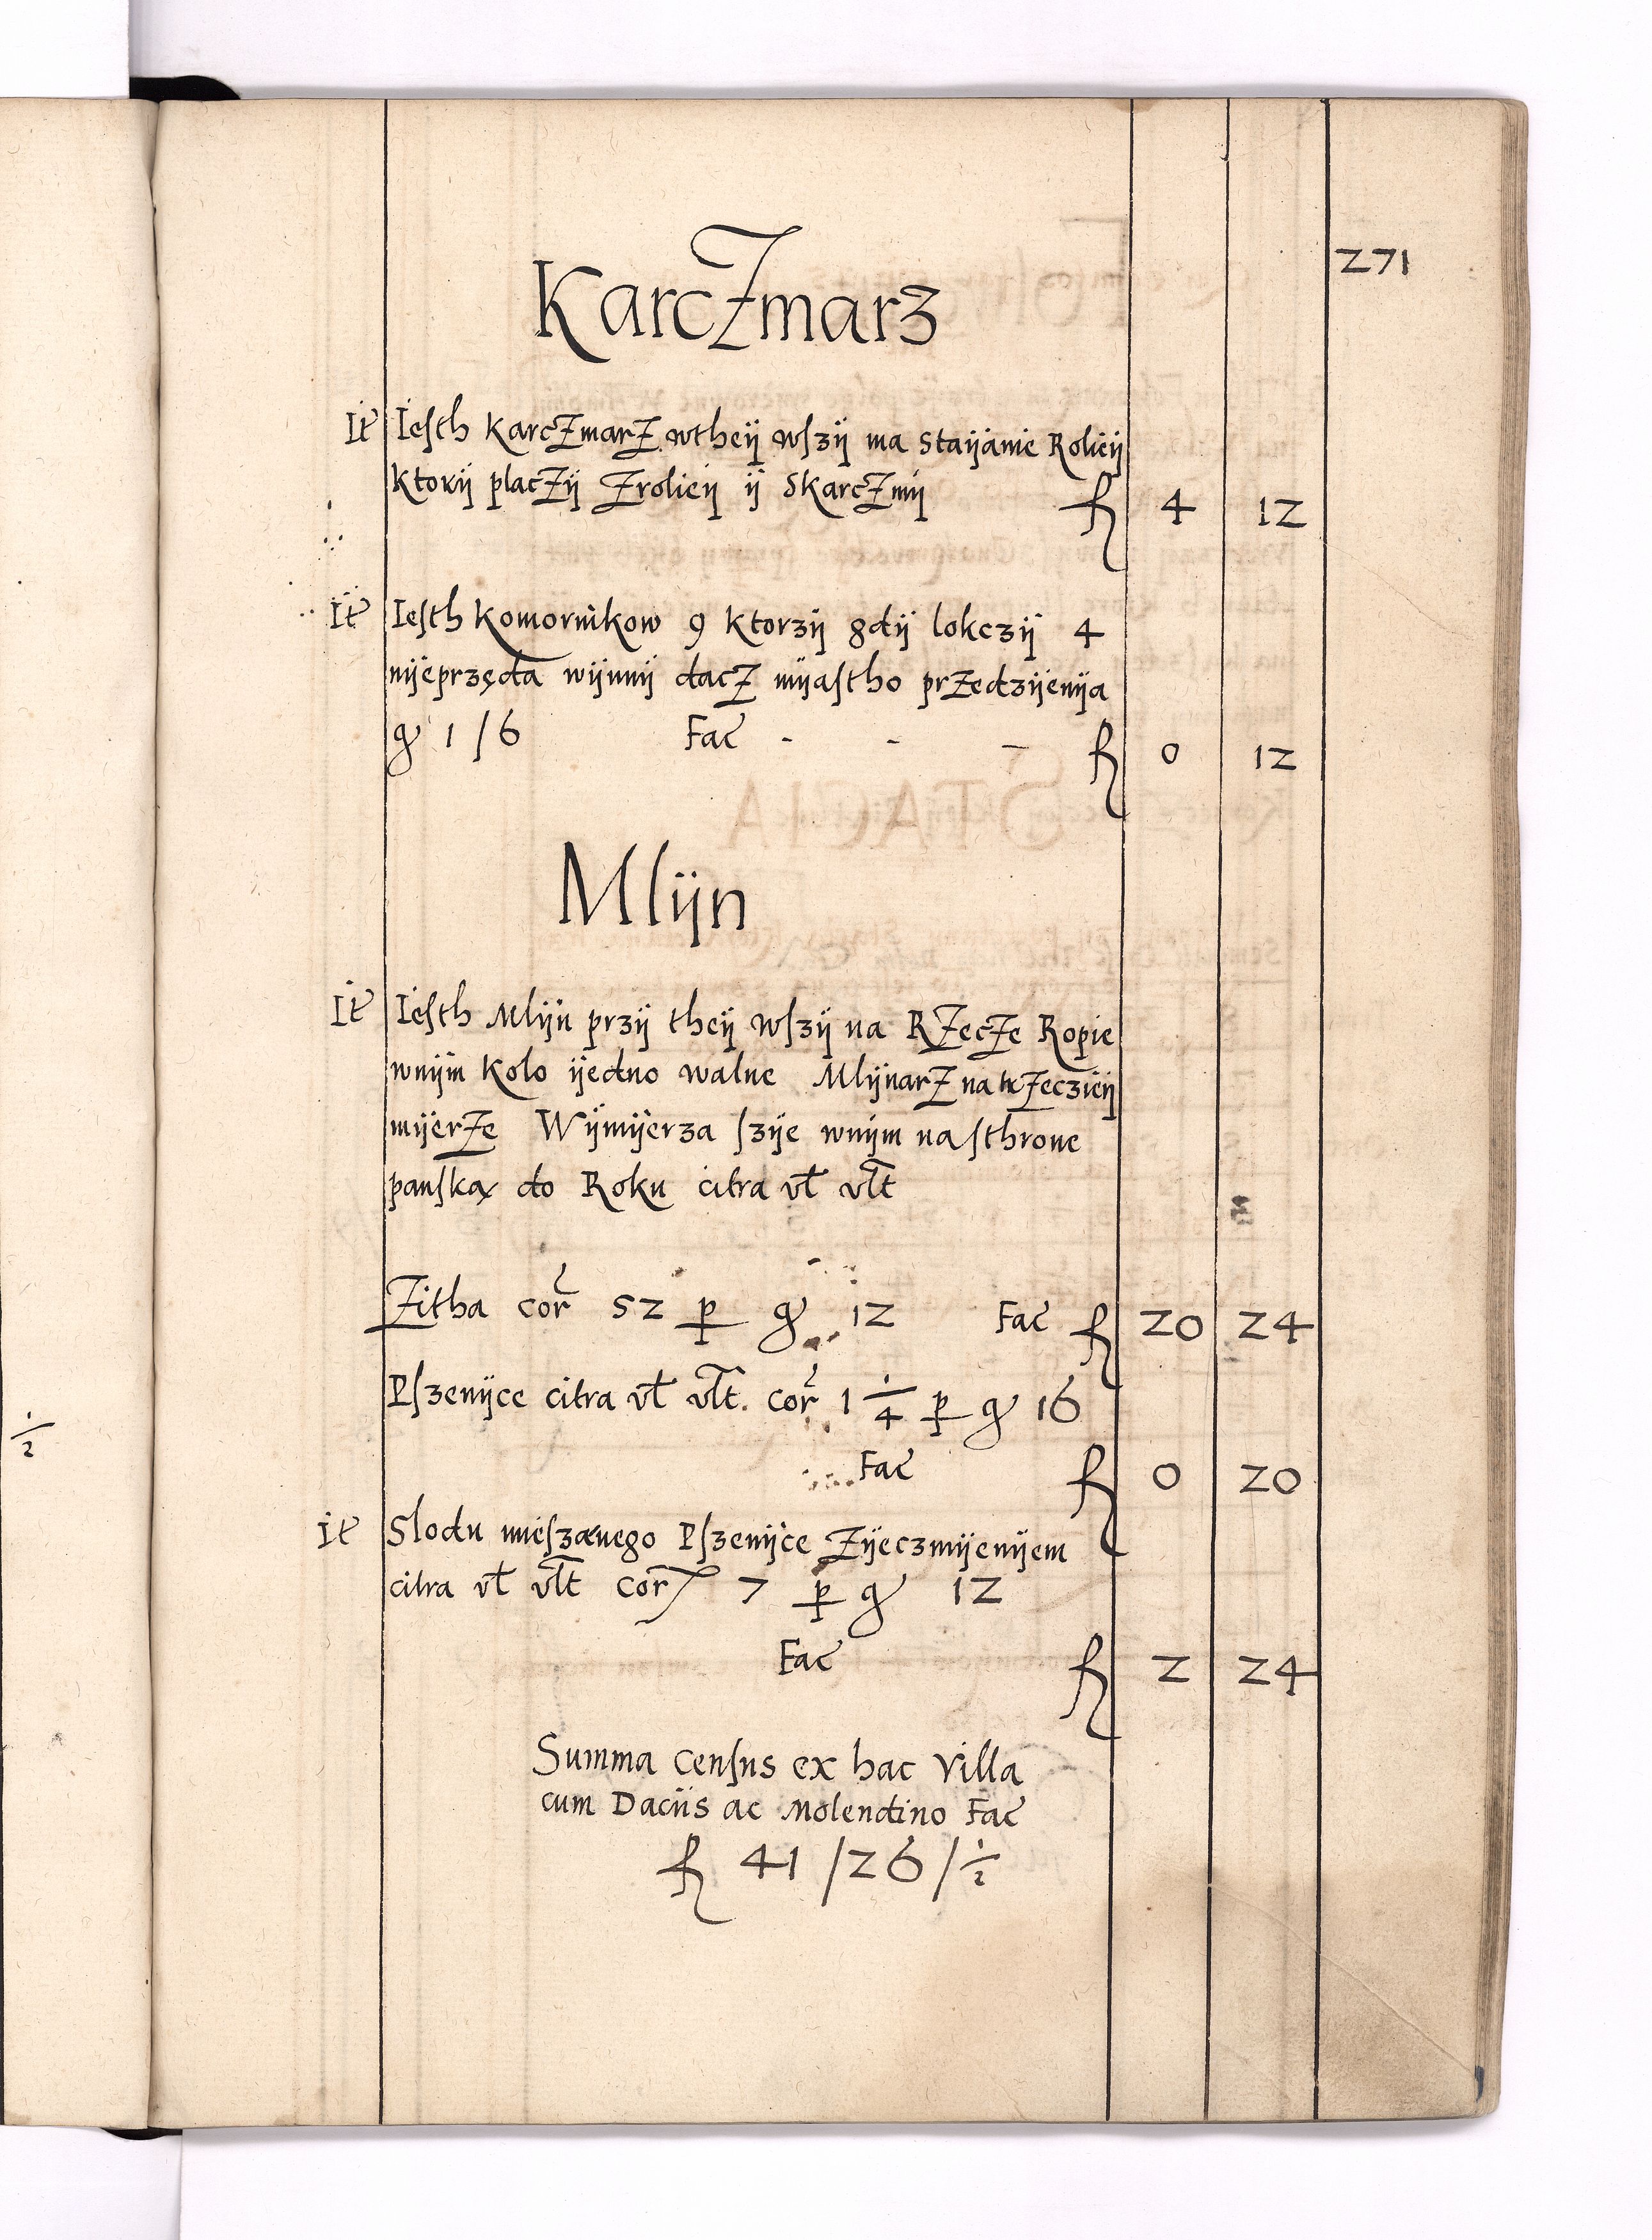 271
KarcZmarz
It Iesth KarcZmarZ wtheÿ wszÿ ma Staÿanie Roliеÿ
Ktorÿ placZÿ Zrolieÿ ÿ SkarcZmÿ fl 4 12
It Iesth Komornikow 9 Ktorzÿ gdÿ lokczÿ 4
nÿeprzęda wÿnnÿ dacZ mÿastho prZedzÿenÿa
gr 1/6 Fac̃ - - - fl 0 12
Mlÿn
It Iesth Mlÿn przÿ theÿ wszÿ na RZecZe Ropie
wnÿm Kolo ÿedno walne MlÿnarZ na trZeczieÿ
mÿerZe Wÿmÿerza szÿe wnÿm nasthrone
panską do Roku citra vl̃ vlt̃
Zitha cor̃ 52 p gr 12 Fac̃ fl 20 24
Pszenÿce citra vl̃ vlt̃. cor̃ 1 1/4 p gr 16
Fac̃ fl 0 20
it Slodu mieszanego Pszenÿce Zÿeczmÿenÿem
citra vl̃ vlt̃ cor̃ 7 p gr 12
Fac̃ fl 2 24
Summa Census ex hac Villa
cum Daciis ac Molendino Fac̃
fl 41/26/1/2
1/2